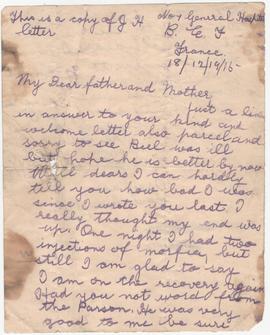 This is a copy of J H
letter
No 1 General Hospital
B. E. F
France
18/12/1915
My Dear father and Mother,
just a line
in answer to your kind and
welcome letter also parcel and
sorry to see Bill was ill
but hope he is better by now
Well dears I can hardly
tell you how bad I was
since I wrote you last. I
really thought my end was
up. One night I had two
injections of morfia, but
still I am glad to say
I am on the recovery again
Had you not word from
the Parson. He was very
good to me be sure